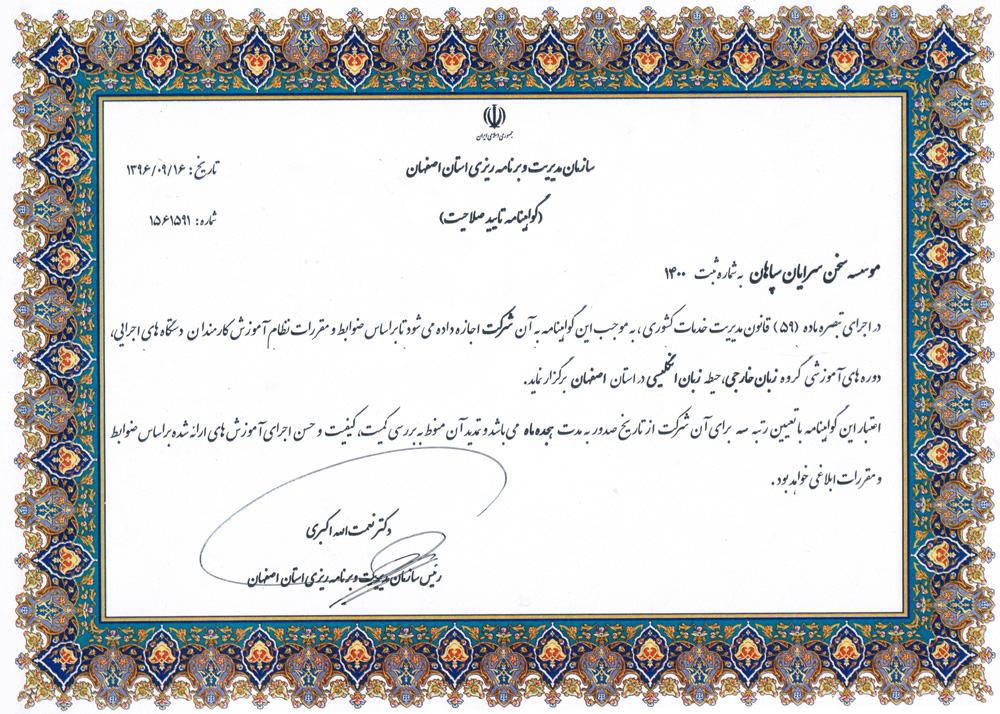 جمهوری اسلامی ایران
سازمان مدیریت و برنامه ریزی استان اصفهان
تاریخ: ۱۳۹۶/۰۹/۱۶
(گواهینامه تایید صلاحیت)
شماره: ۱۵۶۱۵۹۱
موسسه سخن سرایان سپاهان به شماره ثبت ۱۴۰۰
در اجرای تبصره ماده (۵۹) قانون مدیریت خدمات کشوری، به موجب این گواهینامه به آن شرکت اجازه داده می شود تا براساس ضوابط و مقررات نظام آموزش کارمندان دستگاه های اجرایی،
دوره های آموزشی گروه زبان خارجی، حیطه زبان انگلیسی در استان اصفهان برگزار نماید.
اعتبار این گواهینامه با تعیین رتبه سه برای آن شرکت از تاریخ صدور به مدت هجده ماه می باشد و تمدید آن منوط به بررسی کمیت، کیفیت و حسن اجرای آموزش های ارائه شده براساس ضوابط
و مقررات ابلاغی خواهد بود.
دکتر نعمت الله اکبری
رئیس سازمان مدیریت و برنامه ریزی استان اصفهان